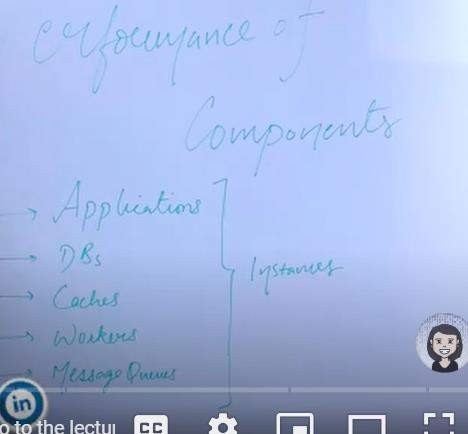 Performance of
Components
→ Applications
→ DBs
→ Caches
→ Workers
→ Message Queues
Instances
in
o to the lectur
CC